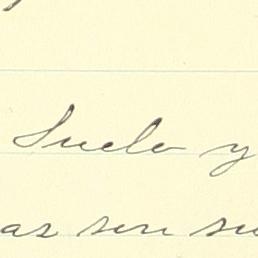 Suelo y
as son su